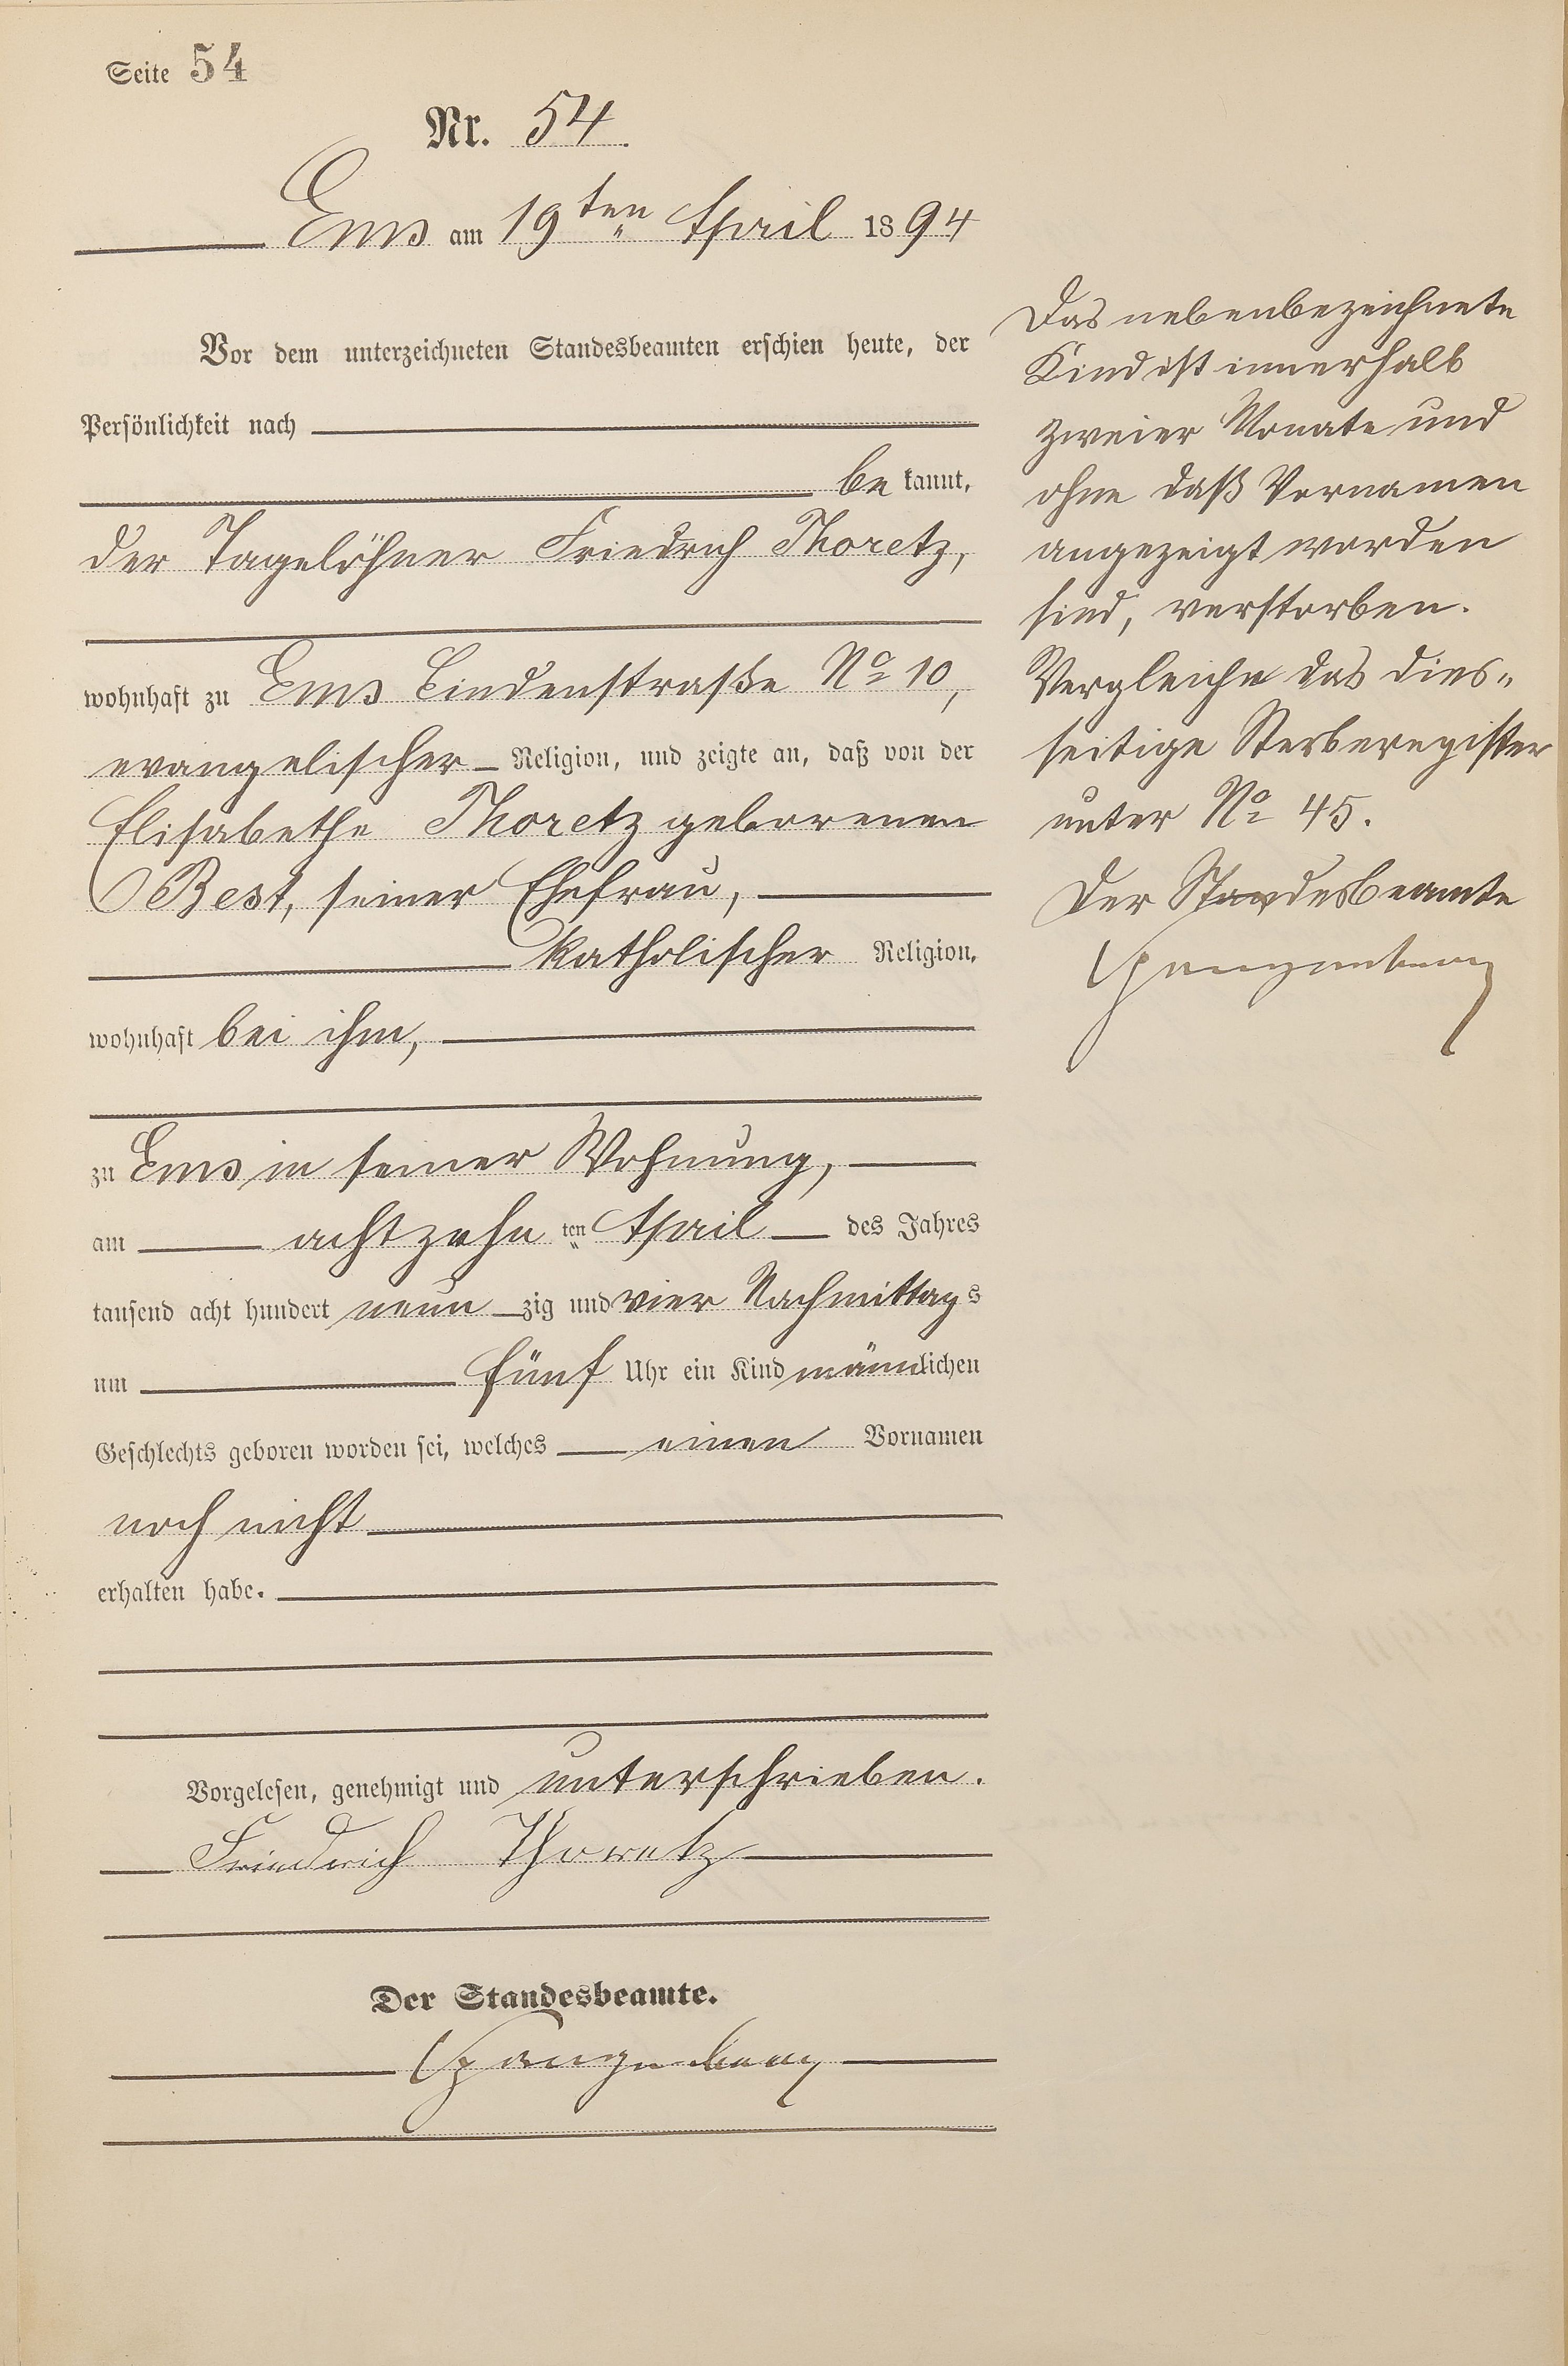 Seite 54
Nr. 54.
Ems am 19ten April 1894
Vor dem unterzeichneten Standesbeamten erschien heute, der
Persönlichkeit nach
be kannt,
der Tagelöhner Friedrich Thoretz,
wohnhaft zu Ems Lindenstraße No 10,
evangelischer Religion, und zeigte an, daß von der
Elisabethe Thoretz geborenen
Best, seiner Ehefrau,
katholischer Religion,
wohnhaft bei ihm,
zu Ems in seiner Wohnung,
am achtzehn ten April des Jahres
tausend acht hundert neun zig und vier Nachmittags
um fünf Uhr ein Kind männlichen
Geschlechts geboren worden sei, welches einen Vornamen
noch nicht
erhalten habe.
Vorgelesen, genehmigt und unterschrieben.
Friedrich Thoretz
Der Standesbeamte.
Das nebenbezeichnete
Kind ist innerhalb
zweier Monate und
ohne daß Vornamen
angezeigt worden
sind, verstorben.
Vergleiche das dies„
seitige Sterberegister
unter No 45.
Der Standesbeamte